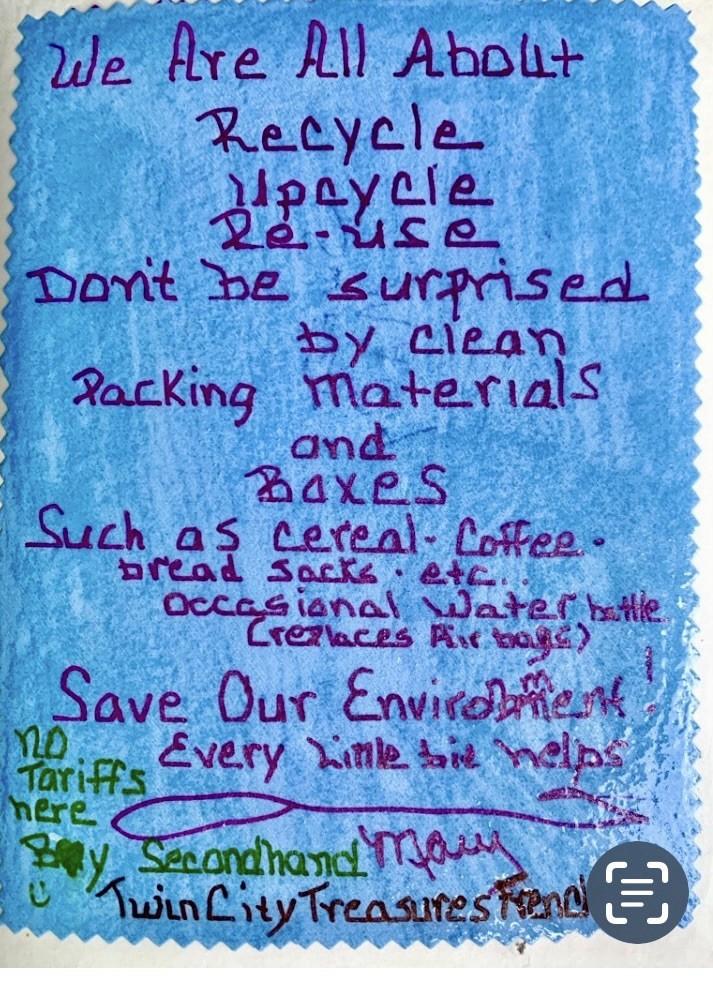 We Are All About
Recycle
Upcycle
Re-use
Don't be surprised
by clean
Packing Materials
and
Boxes
Such as cereal - Coffee -
bread sacks . etc..
occasional Water bottle
(replaces Air bags)
Save Our Environment!
Every Little bit helps
no
Tariffs
here
Buy Secondhand
Twin City Treasures